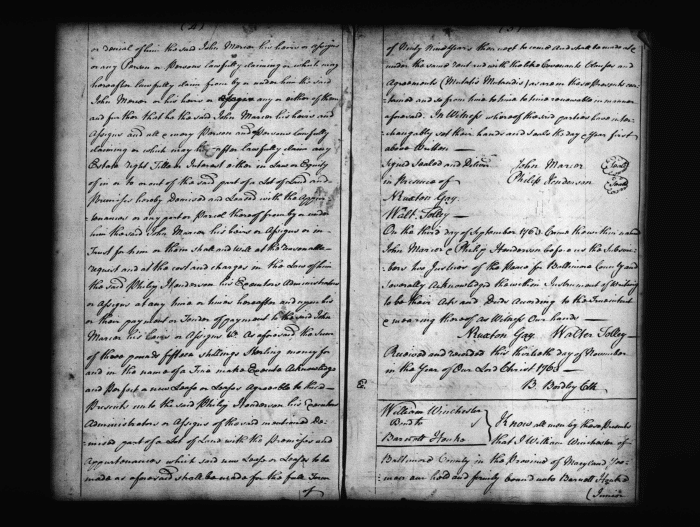 or denial of him the said John Marion his heirs or Assigns
or any Person or Persons lawfully claiming or which may
hereafter lawfully claim from by or under him the said
John Marion or his heirs or Assigns any or either of them
and further that he the said John Marion his heirs and
Assigns and all & every Person and Persons lawfully
claiming or which may hereafter lawfully claim any
Estate right Title or Interest either in Law or Equity
of in or to most of the said part of a Lot of Land and
Premises hereby Demised and Leased with the Appur
tenances or any part or Parcel thereof from by or under
him the said John Marion his heirs or Assigns or in
Trust for him or them shall and will at the reasonable
request and at the cost and charges in the Law of him
the said Philip Henderson his Executors Administrators
or Assigns at any time or times hereafter and upon his
or their payment or Tender of payment to the said John
Marion his heirs or Assigns &c As aforesaid the Sum
of three pounds fifteen shillings Sterling money for
and in the name of a Fine make Execute Acknowledge
and Perfect a new Lease or Leases Agreeable to these
Presents unto the said Philip Henderson his Executors
Administrators or Assigns of the said mentioned De-
mised part of a Lot of Land with the Premises and
Appurtenances which said new Lease or Leases to be
made as aforesaid shall be made for the full Term
of
(5)
of Ninety Nine Years then next to come and shall be made
under the same rent and with the like Covenants Clauses and
Agreements (Mutatis Mutandis) as are in these Presents con
tained and so from time to time to time renewable in manner
aforesaid. In Witness whereof the said parties have inter-
changably set their hands and Seals the day & Year first
above Written —
Signed Sealed and Deliver'd John Marion (Seal)
in Presence of Philip Henderson (Seal)
Nuxton Gay.
Walt. Tolley —
On the third day of September 1763 Came the within named
John Marion & Philip Henderson before us the Subscri-
bers his Justices of the Peace for Baltimore County and
Severally Acknowledged the within Instrument of Writing
to be their Act and Deed According to the true intent
& meaning thereof as Witness Our hands —
Nuxton Gay Walter Tolley —
Received and recorded this thirtieth day of November
in the Year of Our Lord Christ 1763 —
B. Bordley Clk
E.
William Winchester
Bond to
Barnett Houke
Know all men by these Presents
that I William Winchester of
Baltimore County in the Province of Maryland Yeo-
man am held and firmly bound unto Barnett Houke
(Junior